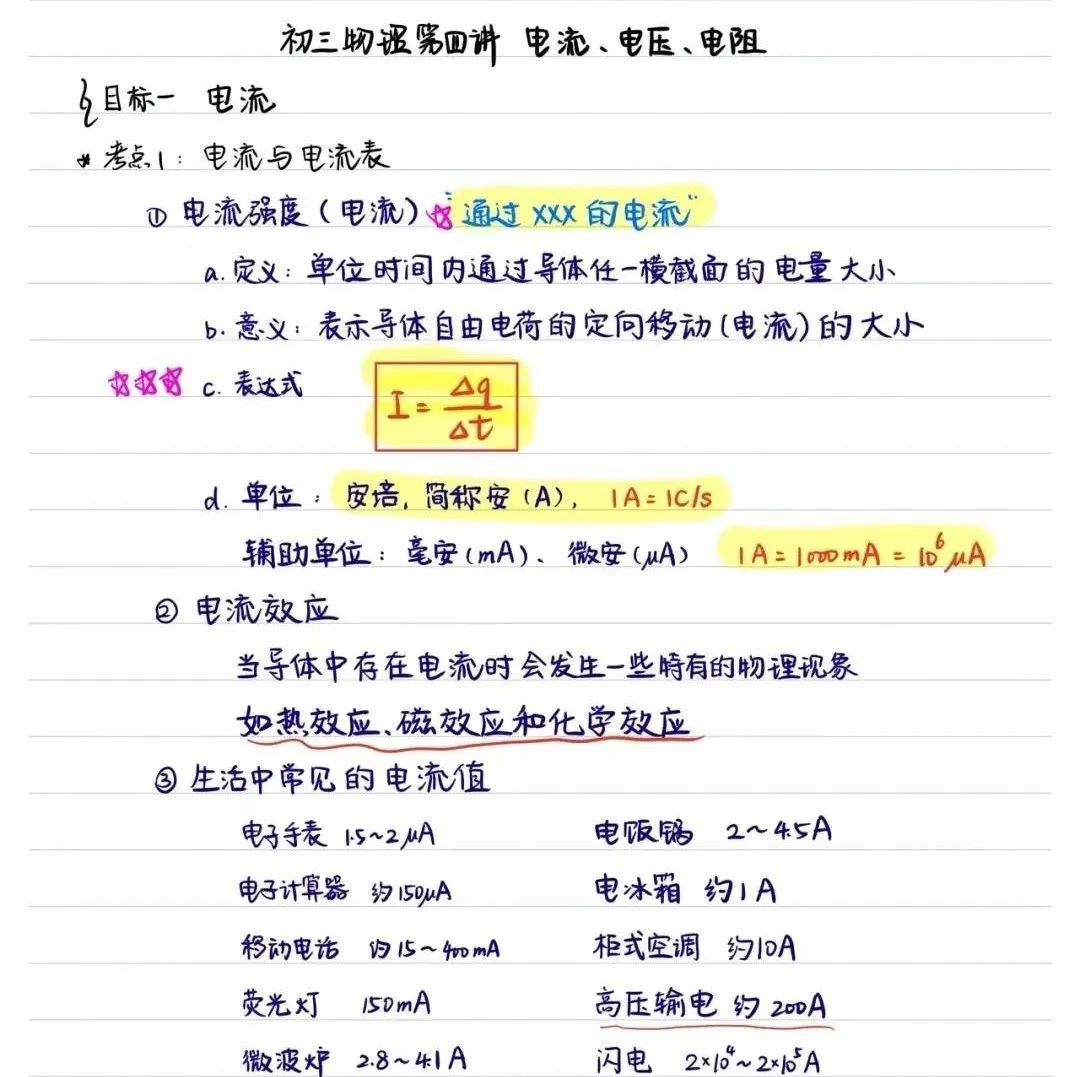 初三物理第四讲 电流、电压、电阻
目标一 电流
* 考点1: 电流与电流表
① 电流强度(电流) ☆"通过 XXX 的电流"
a. 定义: 单位时间内通过导体任一横截面的电量大小
b. 意义: 表示导体自由电荷的定向移动(电流)的大小
☆☆☆ c. 表达式 I = Δq/Δt
d. 单位: 安培, 简称安(A), 1A=1C/s
辅助单位: 毫安(mA)、微安(μA) 1A=1000mA=10⁶μA
② 电流效应
当导体中存在电流时会发生一些特有的物理现象
如热效应、磁效应和化学效应
③ 生活中常见的电流值
电子手表 1.5~2μA 电饭锅 2~4.5A
电子计算器 约150μA 电冰箱 约1A
移动电话 约15~400mA 柜式空调 约10A
荧光灯 150mA 高压输电 约200A
微波炉 2.8~4.1A 闪电 2×10⁴~2×10⁵A